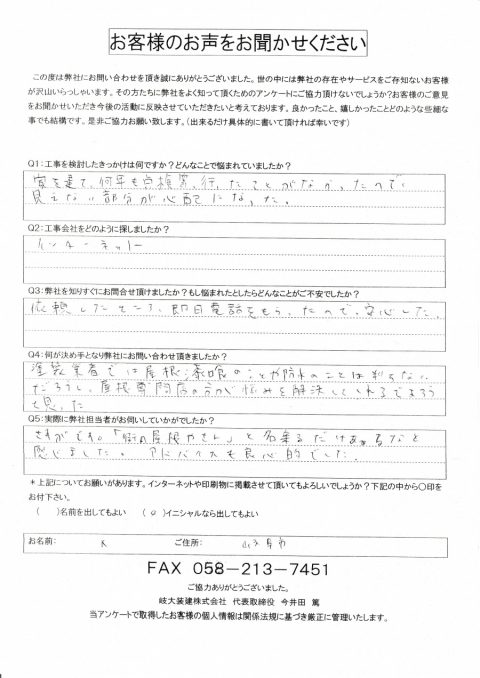 お客様のお声をお聞かせください
この度は弊社にお問い合わせを頂き誠にありがとうございました。世の中には弊社の存在やサービスをご存知ないお客様
が沢山いらっしゃいます。その方たちに弊社をよく知って頂くためのアンケートにご協力頂けないでしょうか?お客様のご意見
をお聞かせいただき今後の活動に反映させていただきたいと考えております。良かったこと、嬉しかったことどのような些細な
事でも結構です。是非ご協力お願い致します。(出来るだけ具体的に書いて頂ければ幸いです)
Q1:工事を検討したきっかけは何ですか?どんなことで悩まれていましたか?
家を建て、何年も点検等、行ったことがなかったので、
見えない部分が心配になった。
Q2:工事会社をどのように探しましたか?
インターネット
Q3:弊社を知りすぐにお問合せ頂けましたか?もし悩まれたとしたらどんなことがご不安でしたか?
依頼したところ、即日電話をもらったので、安心した。
Q4:何が決め手となり弊社にお問い合わせ頂きましたか?
塗装業者では屋根
のことや防水のことは判らない
だろうし、屋根専門店の方が悩みを解決してくれるであろう
と思った
Q5:実際に弊社担当者がお伺いしていかがでしたか?
さすがです。「街の屋根やさん」と名乗るだけあるなと
感じました。アドバイスも良心的でした。
*上記についてお願いがあります。インターネットや印刷物に掲載させて頂いてもよろしいでしょうか?下記の中から〇印を
お付下さい。
( )名前を出してもよい (o)イニシャルなら出してもよい
お名前: K ご住所: 山県市
FAX 058-213-7451
ご協力ありがとうございました。
岐大装建株式会社 代表取締役 今井田 篤
当アンケートで取得したお客様の個人情報は関係法規に基づき厳正に管理いたします。